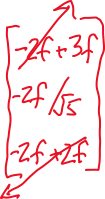 -2f+3f
-2f/√5
-2f+2f